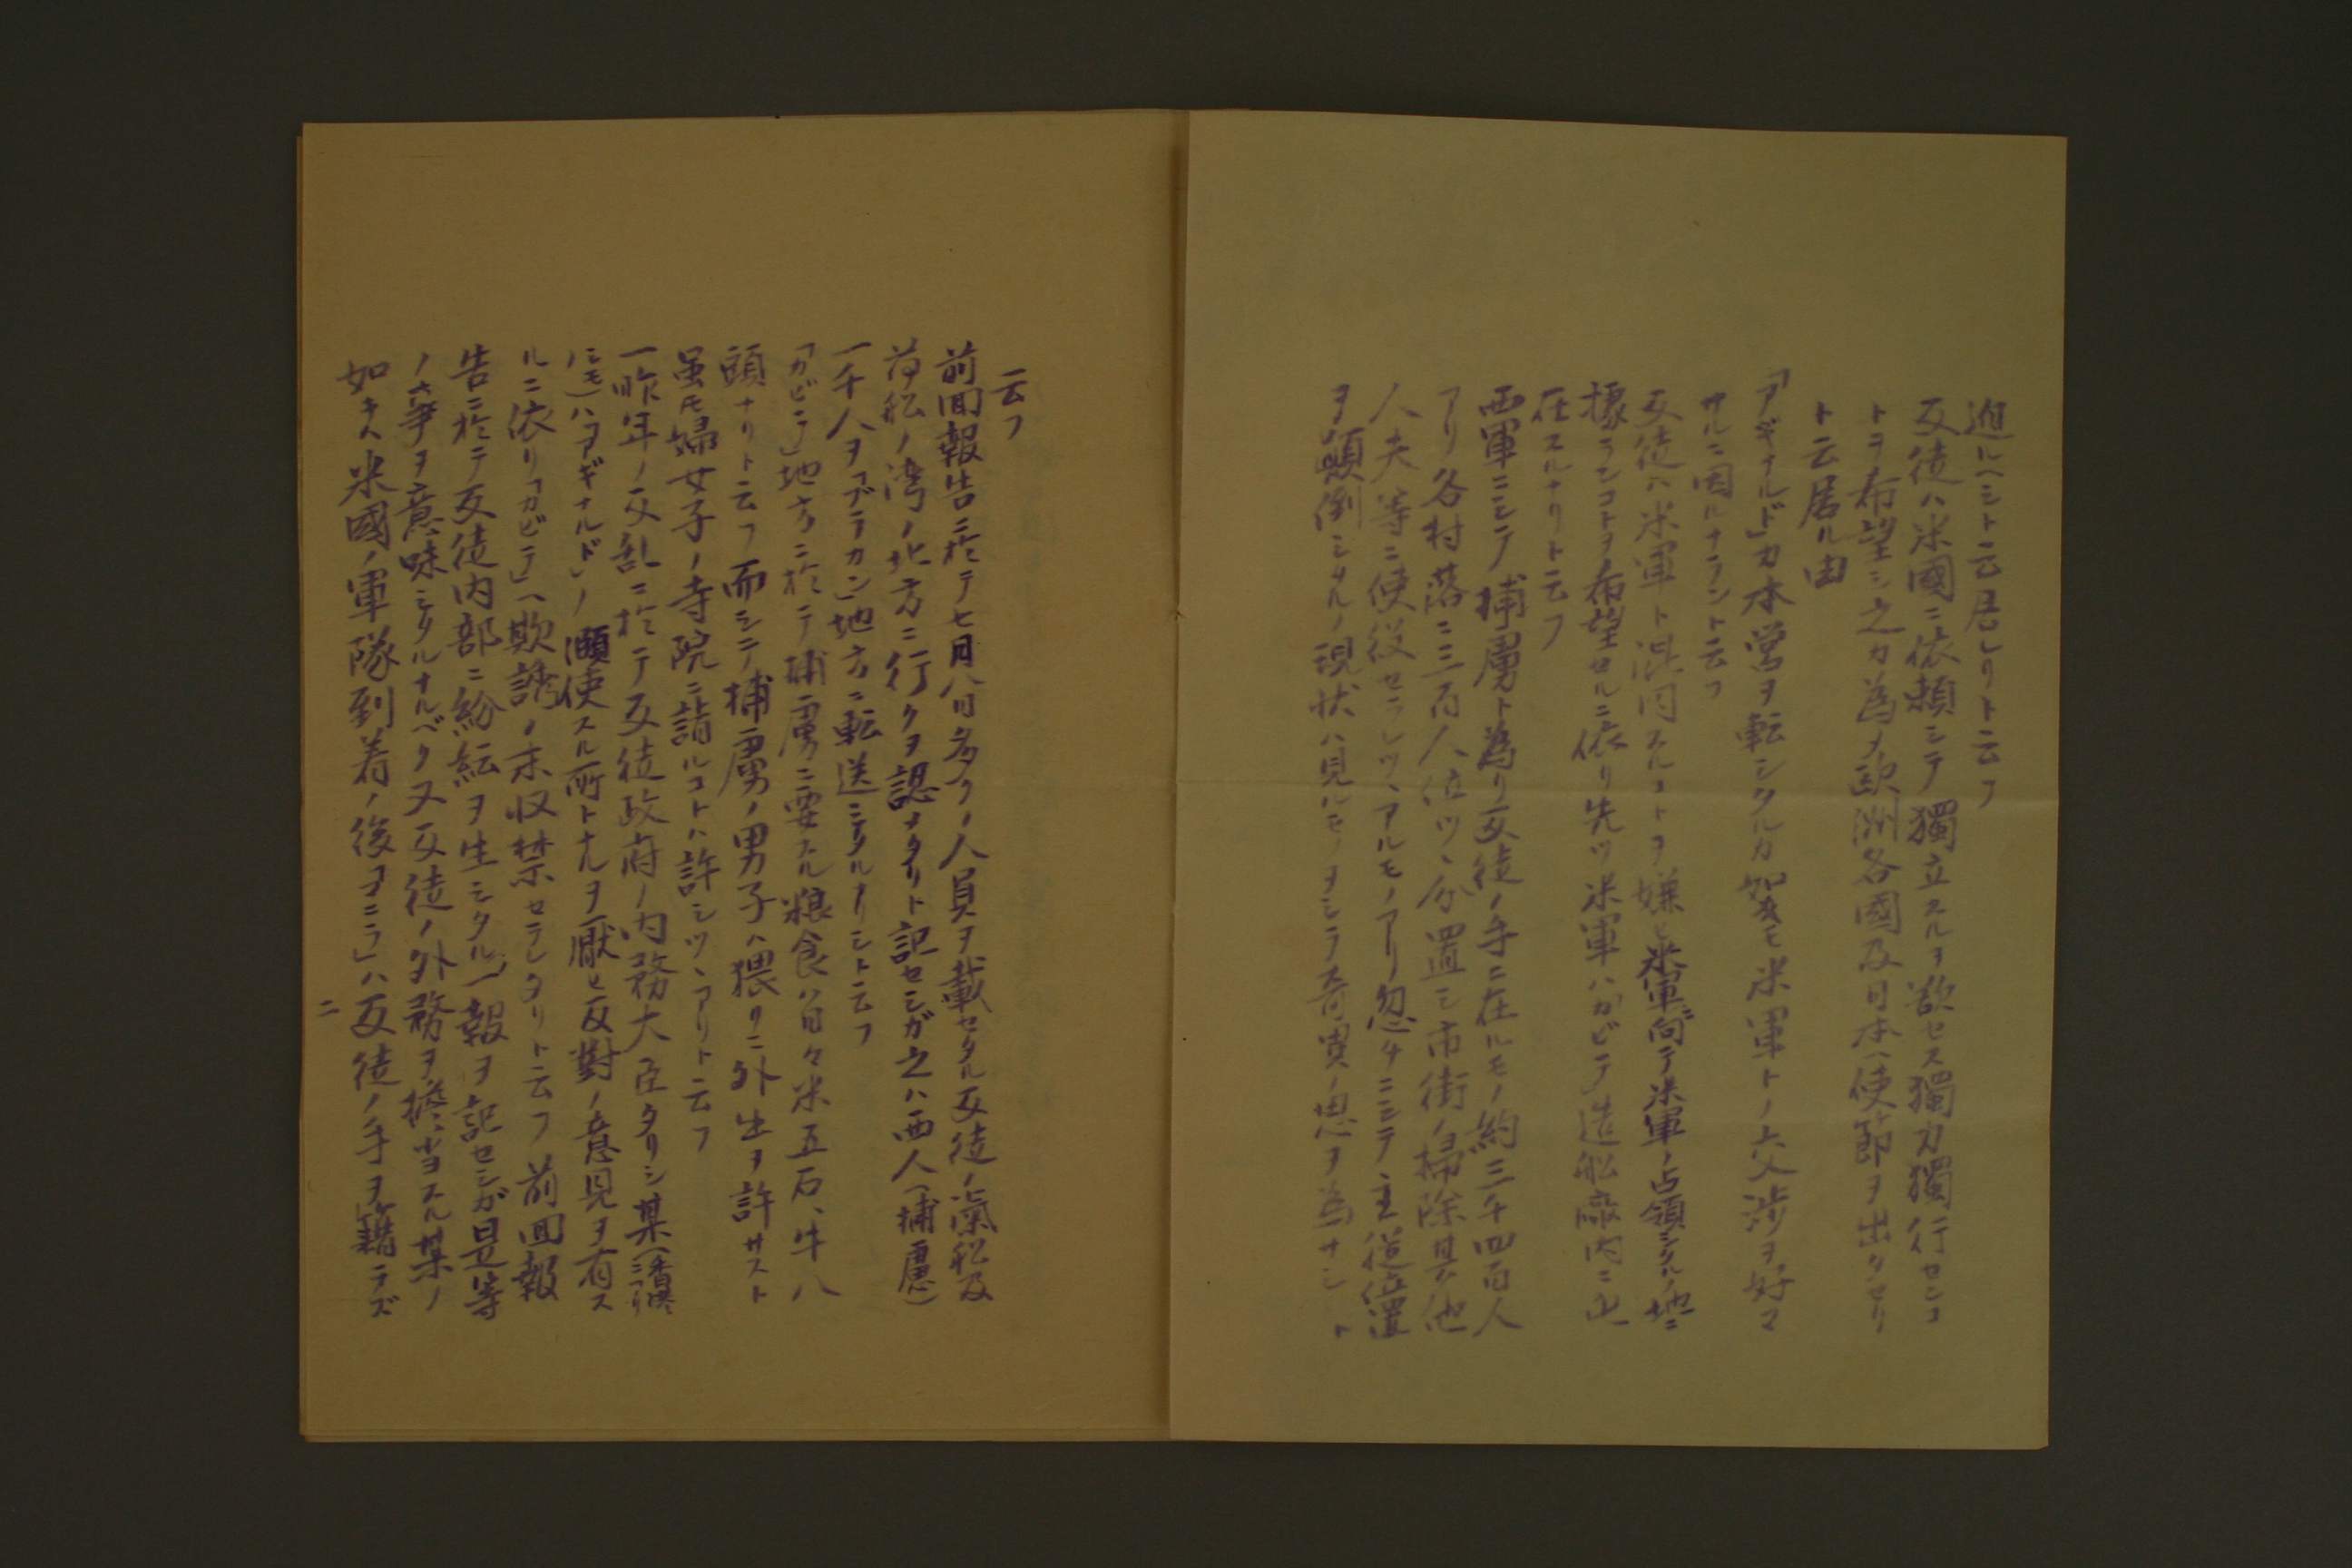 迎ルヘシト云居レリト云フ
反徒ハ米國ニ依頼シテ獨立スルヲ欲セス獨力獨行センコ
トヲ希望シ之カ為メ欧洲各國及日本ヘ使節ヲ出タセリ
ト云居ル由
「アギナルド」カ本営ヲ転シタルカ如キモ米軍トノ交渉ヲ好マ
サルニ因ルナラント云フ
反徒ハ米軍ト混同スルコトヲ嫌ヒ米軍ニ向テ米軍ノ占領シタルノ地ニ
據ランコトヲ希望セルニ依リ先ツ米軍ハ「カビテ」造舩廠内ニ止
在スルナリト云フ
西軍ニシテ捕虜ト為リ反徒ノ手ニ在ルモノ約三千四百人
アリ各村落ニ三百人位ツヽ分置シ市街ノ掃除其他
人夫等ニ使役セラレツヽアルモノアリ忽チニシテ主従位置
ヲ顛倒シタルノ現状ハ見ルモノヲシテ奇異ノ思ヲ為サシト
云フ
前回報告ニ於テ七月八日多クノ人員ヲ載セタル反徒ノ滊舩及
荷舩ノ湾ノ北方ニ行クヲ認メタリト記セシガ之ハ西人(捕虜)
一千人ヲ「ブラカン」地方ニ転送シタルナリシト云フ
「カビテ」地方ニ於テ捕虜ニ要スル粮食ハ日々米五石、牛八
頭ナリト云フ而シテ捕虜ノ男子ハ猥リニ外出ヲ許サスト
虽モ婦女子ノ寺院ニ詣ルコトハ許シツヽアリト云フ
一昨年ノ反乱ニ於テ反徒政府ノ内務大臣タリシ某(香港ニアリ
シモノ)ハ「アギナルド」ノ頤使スル所トナルヲ厭ヒ反對ノ意見ヲ有ス
ルニ依リ「カビテ」ヘ欺誘ノ末収禁セラレタリト云フ前回報
告ニ於テ反徒内部ニ紛紜ヲ生シタルノ一報ヲ記セシガ是等
ノ事ヲ意味シタルナルベク又反徒ノ外務ヲ擔当スル某ノ
如キハ米國ノ軍隊到着ノ後「マニラ」ハ反徒ノ手ヲ籍ラズ
ニ